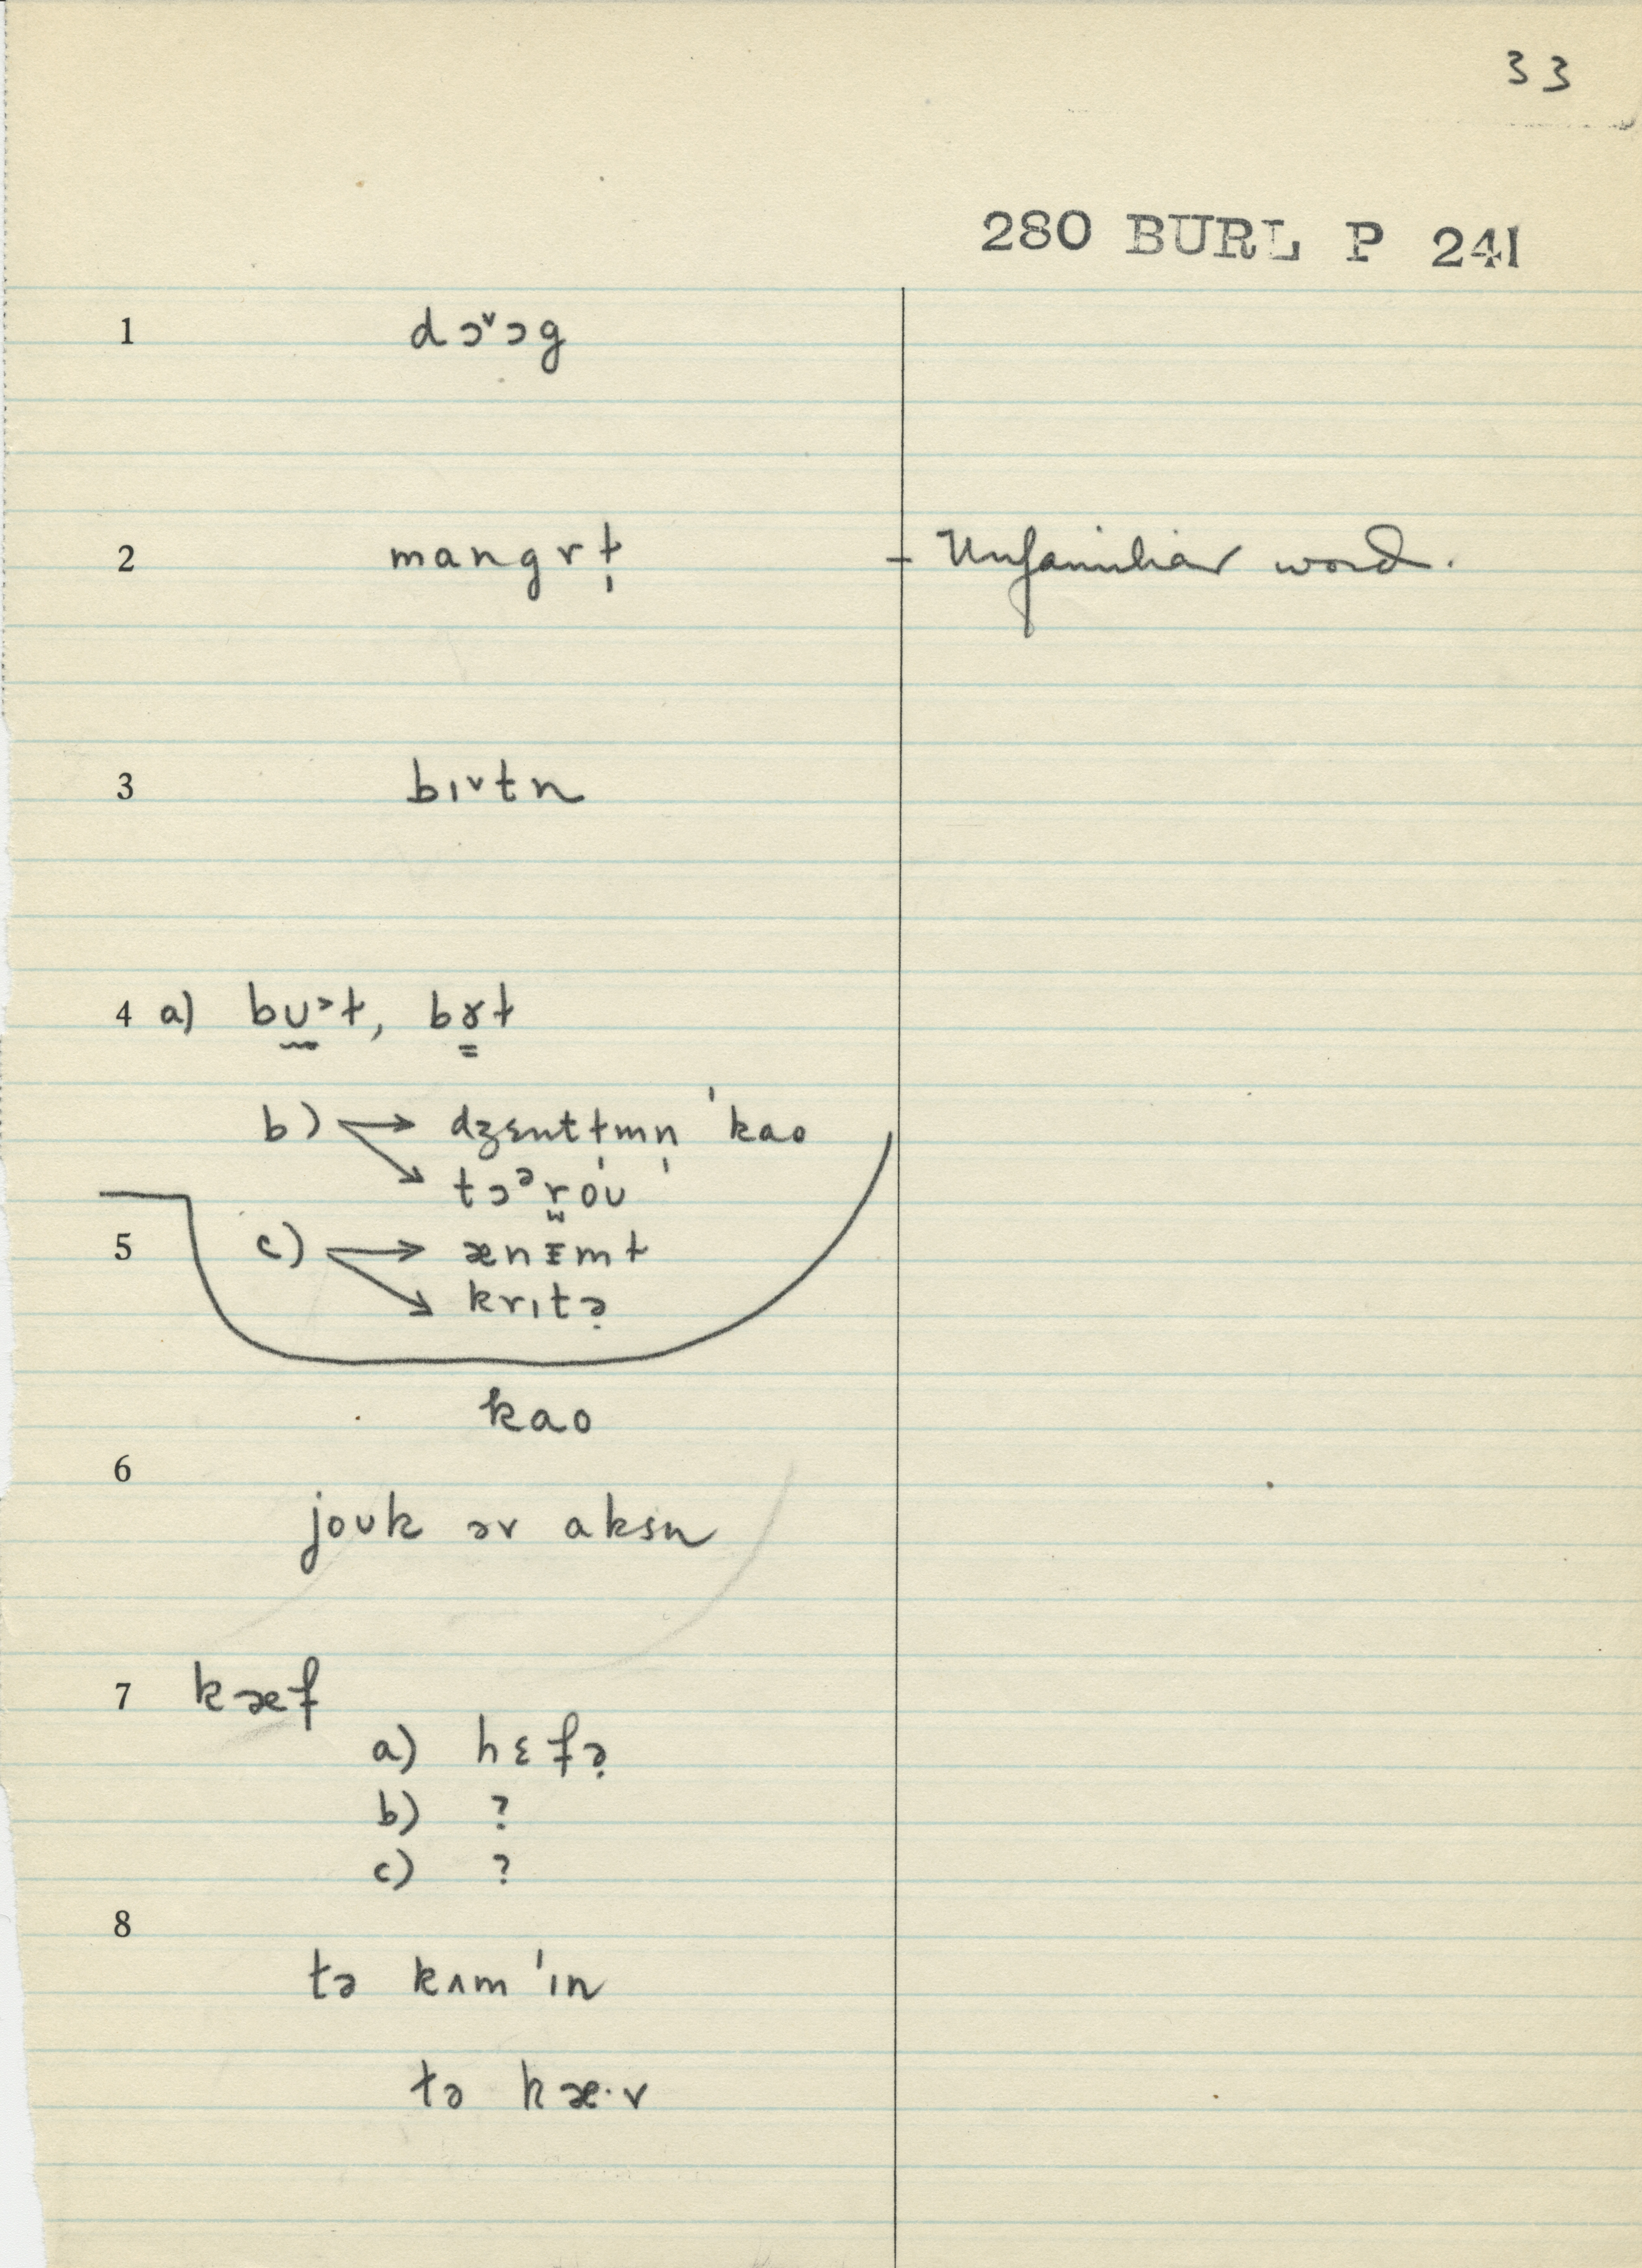 33
280 BURL P 241
1 dɔ˅ɔg
2 mangrɫ̩ – Unfamiliar word.
3 bɪ˅tn
4 a) bʊ̰˃ɫ, bɤ̳ɫ
b) → dʒɛntɫmn̩ ˈkao
→ tɔᵊr̫óʊ
5 c) → ænᵻmɫ
→ krɪtə̣
kao
6
joʊk əv aksn
7 kæf
a) hɛfə̣
b) ?
c) ?
8
tə kʌm ˈɪn
tə kæ·v